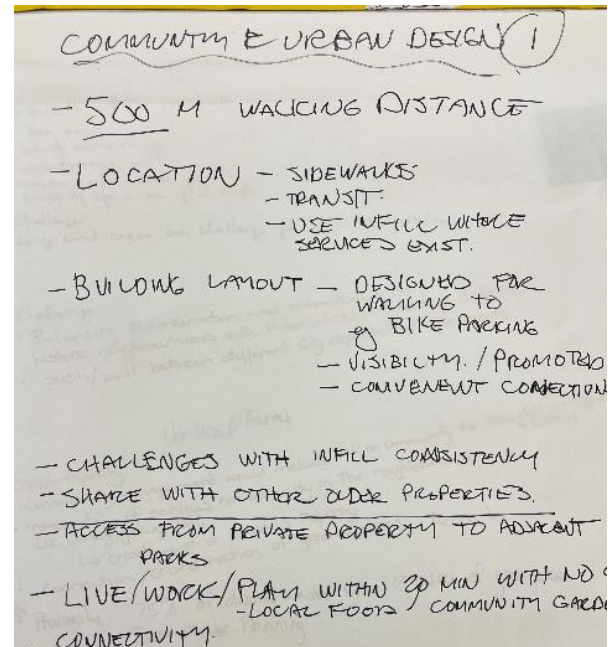 COMMUNITY & URBAN DESIGN 1
- 500 M WALKING DISTANCE
- LOCATION - SIDEWALKS
- TRANSIT.
- USE INFILL WHERE
SERVICES EXIST.
- BUILDING LAYOUT - DESIGNED FOR
WALKING TO
eg BIKE PARKING
- VISIBILITY. / PROMOTED
- CONVENIENT CONNECTION
- CHALLENGES WITH INFILL CONSISTENCY
- SHARE WITH OTHER OLDER PROPERTIES.
- ACCESS FROM PRIVATE PROPERTY TO ADJACENT
PARKS
- LIVE/WORK/PLAY WITHIN 20 MIN WITH NO
- LOCAL FOOD / COMMUNITY GARDE
CONNECTIVITY.